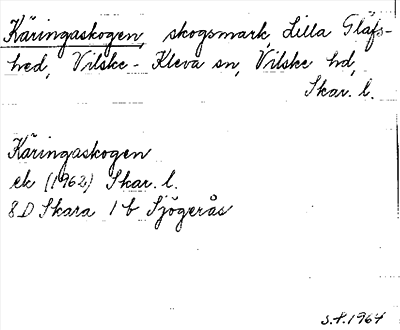 Käringaskogen, skogsmark, Lilla Gläfs-
hed, Vilske-Kleva sn, Vilske hd,
Skar. l.
Käringaskogen
ek (1962) Skar. l.
8D Skara 1 b Sjögerås
S.P. 1964